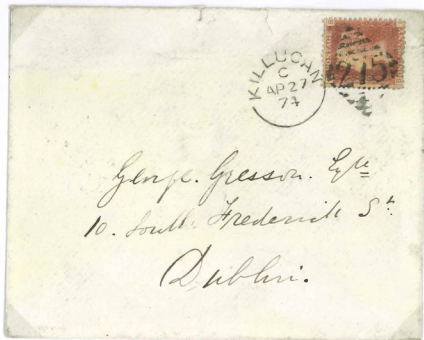 KILLUCAN
C
AP 27
74
215
George Gresson. Esqre
10. South Frederick St.
Dublin.